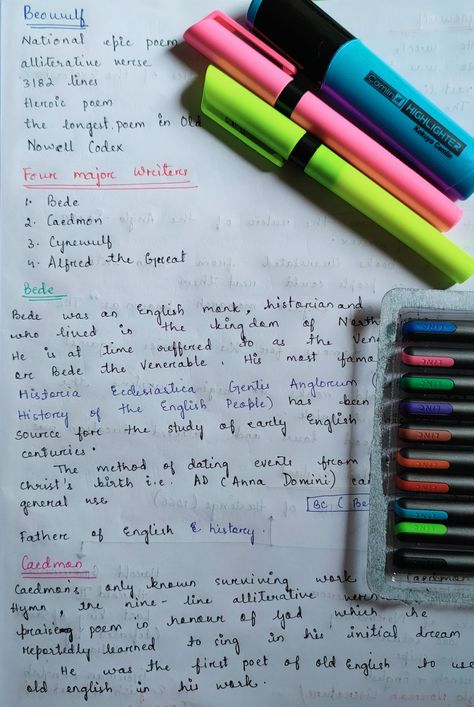 Beowulf
National epic poem
alliterative verse
3182 lines
Heroic poem
the longest poem in Old
Nowell Codex
Four major writers
1. Bede
2. Caedmon
3. Cynewulf
4. Alfred the Great
Bede
Bede was an English monk, historian and
who lived in the kingdom of North
He is at time reffered to as the Vene
or Bede the Venerable. His most famo
Historia Ecclesiastica Gentis Anglorum (
History of the English People) has been
source for the study of early English
centuries.
The method of dating events from
Christ's birth i.e. AD (Anna Domini) ca
general use
BC ( Be
Father of English & history.
Caedmon
Caedmon's only known surviving work Caedmon
Hymn, the nine-line alliterative
praising poem in honour of God which he
reportedly learned to sing in his initial dream
He was the first poet of old English to use
old english in his work.
camlin
HIGHLIGHTER
Kokuyo Camlin
LINC
LINC
LINC
LINC
LINC
LINC
LINC
LINC
LINC